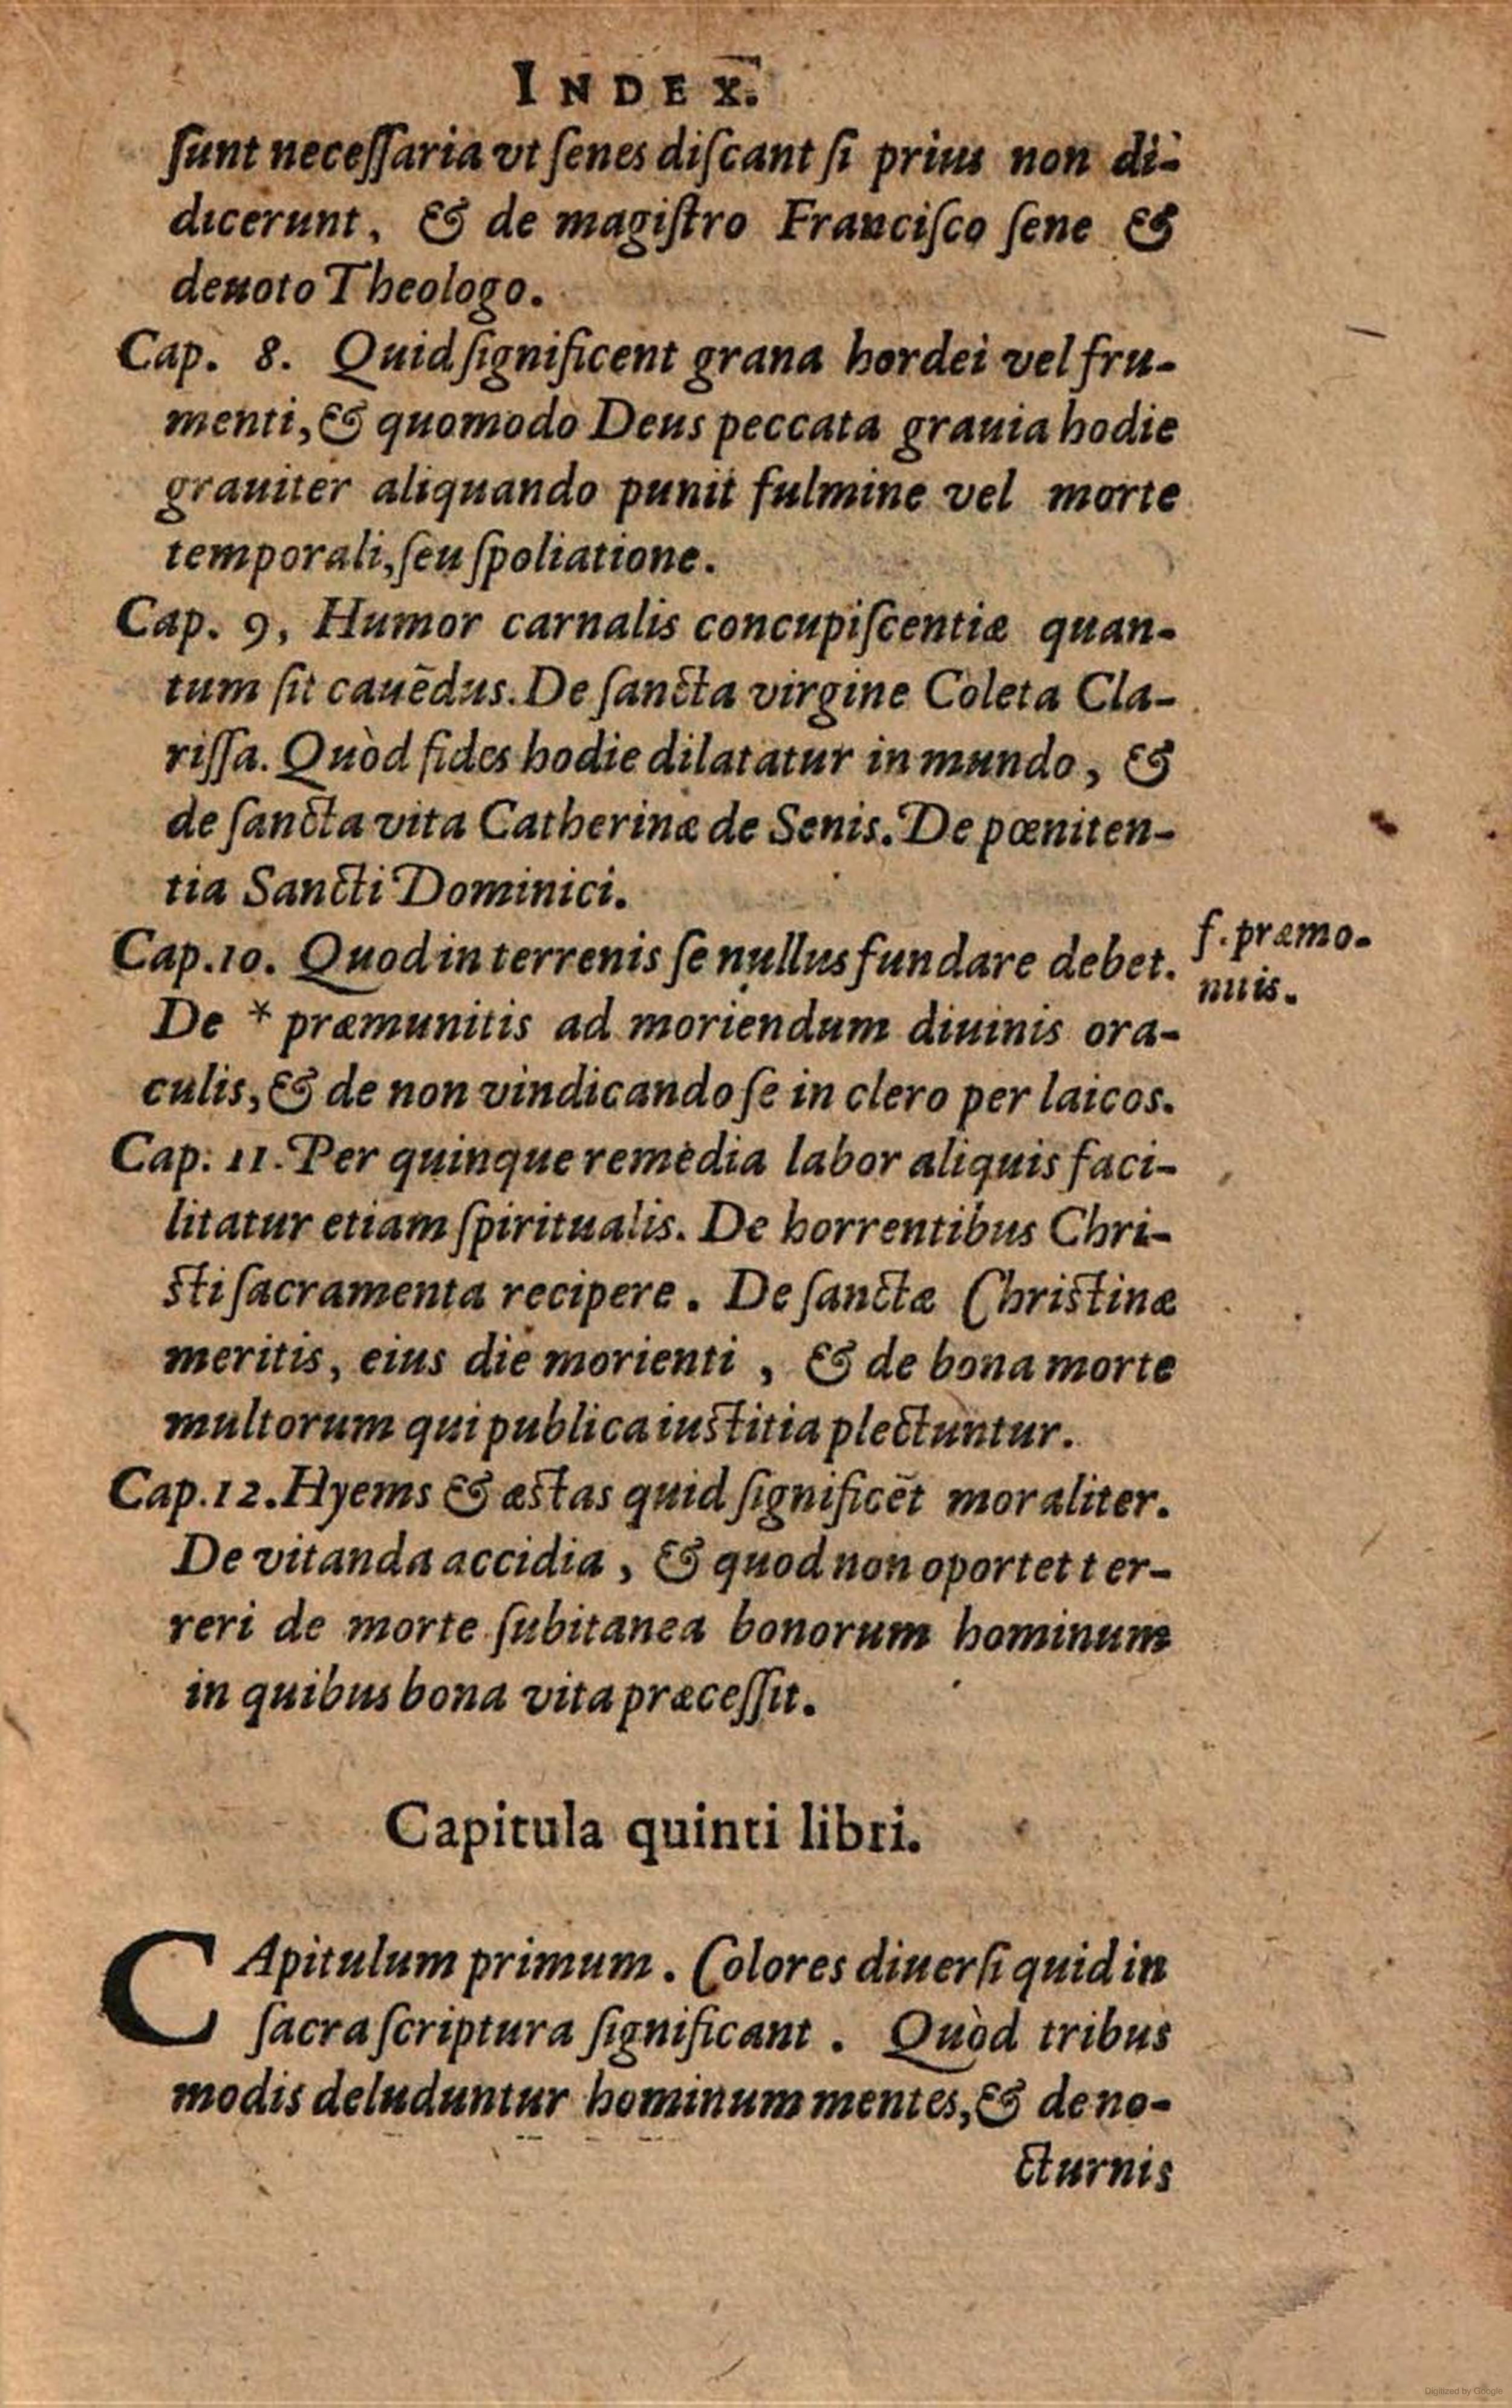 INDEX.
ſunt neceſſaria vt ſenes diſcant ſi prius non di-
dicerunt, & de magiſtro Franciſco ſene &
deuoto Theologo.
Cap. 8. Quid ſignificent grana hordei vel fru-
menti, & quomodo Deus peccata grauia hodie
grauiter aliquando punit fulmine vel morte
temporali, ſeu ſpoliatione.
Cap. 9, Humor carnalis concupiſcentiæ quan-
tum ſit cauēdus. De ſancta virgine Coleta Cla-
riſſa. Quòd fides hodie dilatatur in mundo, &
de ſancta vita Catherinæ de Senis. De pœniten-
tia Sancti Dominici.
Cap. 10. Quod in terrenis ſe nullus fundare debet.
f. præmo-
nitis.
De * præmunitis ad moriendum diuinis ora-
culis, & de non vindicando ſe in clero per laicos.
Cap. 11. Per quinque remedia labor aliquis faci-
litatur etiam ſpiritualis. De horrentibus Chri-
ſti ſacramenta recipere. De ſanctæ Chriſtinæ
meritis, eius die morienti, & de bona morte
multorum qui publica iuſtitia plectuntur.
Cap. 12. Hyems & æſtas quid ſignificēt moraliter.
De vitanda accidia, & quod non oportet ter-
reri de morte ſubitanea bonorum hominum
in quibus bona vita præceſſit.
Capitula quinti libri.
CApitulum primum. Colores diuerſi quid in
ſacra ſcriptura ſignificant. Quòd tribus
modis deluduntur hominum mentes, & de no-
cturnis
Digitized by Google